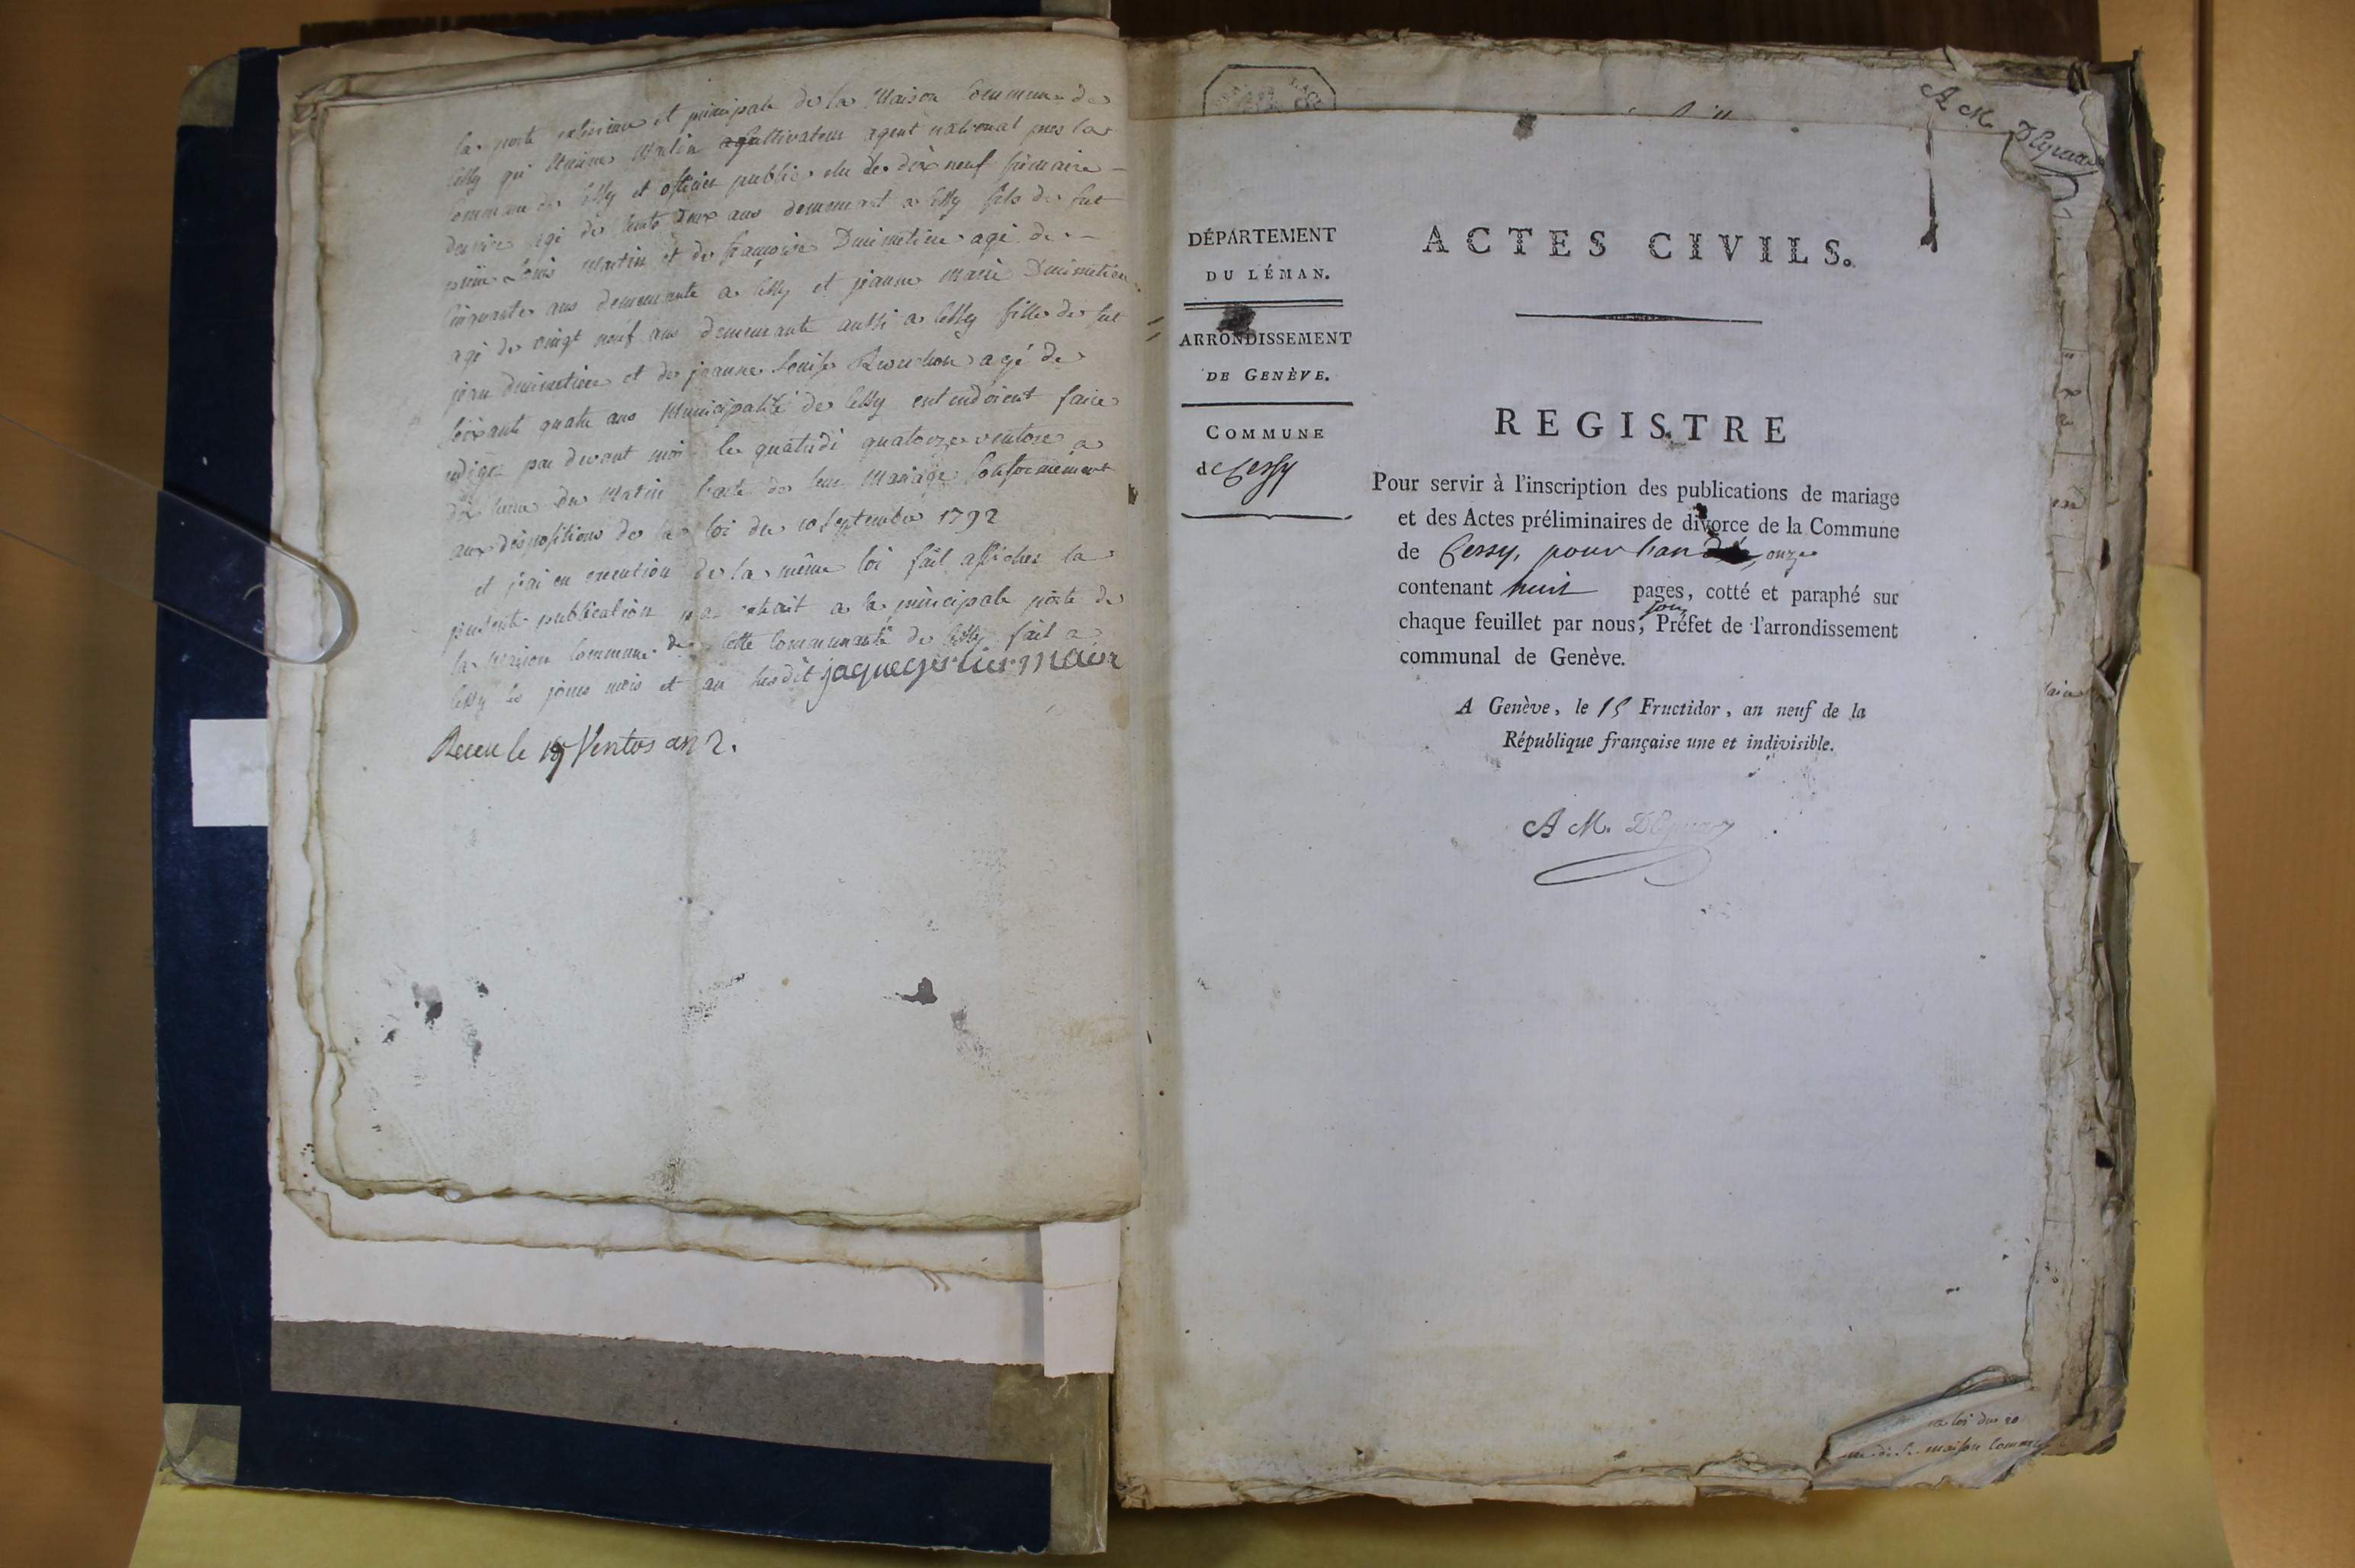 la porte exterieure et principale de la Maison Commune de
Cessy que Etienne Martin cultivateur agent national pres la
Commune de Cessy et officier public elu le dix neuf frimaire
dernier agé de trente deux ans demeurant a Cessy fils de fut
Louis Martin et de françoise Dumetier agé de
cinquante ans demeurante a Cessy et jeanne Marie Dumetier
agé de vingt neuf ans demeurante aussi a Cessy fille de fut
jean Dumetier et de jeanne Louise agé de
soixante quatre ans Municipalité de Cessy entendoient faire
rediger par devant moi le quatridi quatorze ventose a
dix heure du Matin l'acte de leur Mariage Conformement
aux dispositions de la loi du 20 septembre 1792
et j'ai en execution de la même loi fait afficher la
presente publication par extrait a la principale porte de
la Maison Commune de cette Communauté de Cessy fait a
Cessy les jours mois et an susdit jaque
Receu le 19 Ventos an 2.
A M.
DÉPARTEMENT
DU LÉMAN.
ARRONDISSEMENT
DE GENÈVE.
COMMUNE
de Cessy
ACTES CIVILS.
REGISTRE
Pour servir à l'inscription des publications de mariage
et des Actes préliminaires de divorce de la Commune
de Cessy, pour l'an onze
contenant huit pages, cotté et paraphé sur
chaque feuillet par nous, sous Préfet de l'arrondissement
communal de Genève.
A Genève, le 15 Fructidor, an neuf de la
République française une et indivisible.
A M.
la loi du 20
maison commu